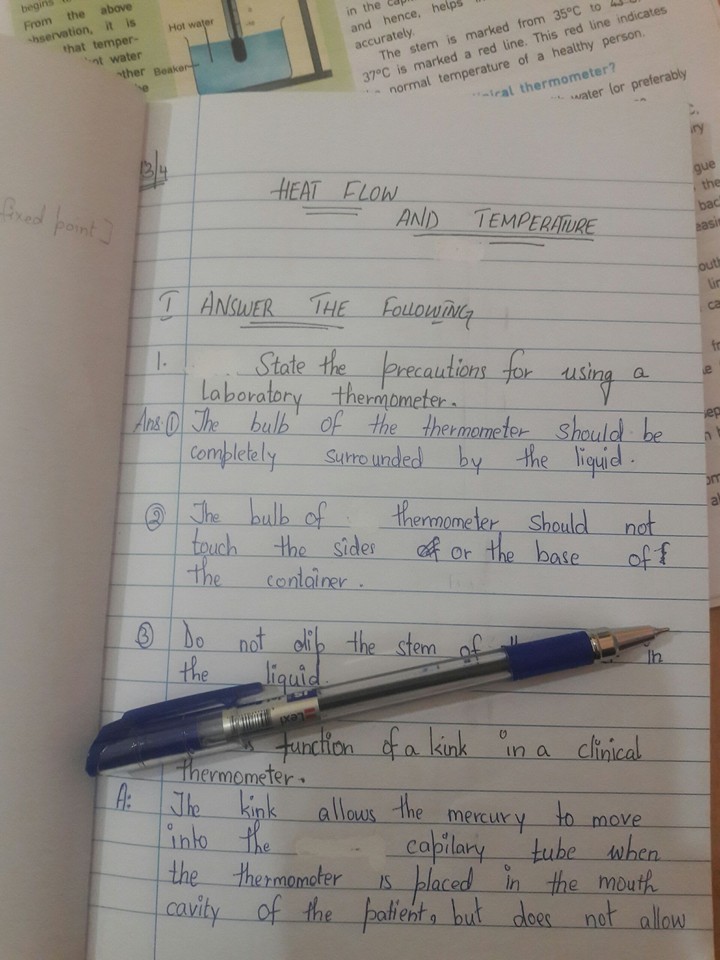 begins
From the above
observation, it is
that temper-
water
other
Hot water
Beaker
in the
and hence, helps
accurately.
The stem is marked from 35°C to
37°C is marked a red line. This red line indicates
normal temperature of a healthy person.
thermometer?
water (or preferably
fixed point]
13/4
HEAT FLOW
AND TEMPERATURE
I ANSWER THE FOLLOWING
1. State the precautions for using a
Laboratory thermometer.
Ans. ① The bulb of the thermometer should be
completely surrounded by the liquid.
② The bulb of thermometer should not
touch the sides or the base of
the container.
③ Do not dip the stem of in
the liquid.
Lexi
function of a kink in a clinical
thermometer.
A: The kink allows the mercury to move
into the capilary tube when
the thermometer is placed in the mouth
cavity of the patient, but does not allow